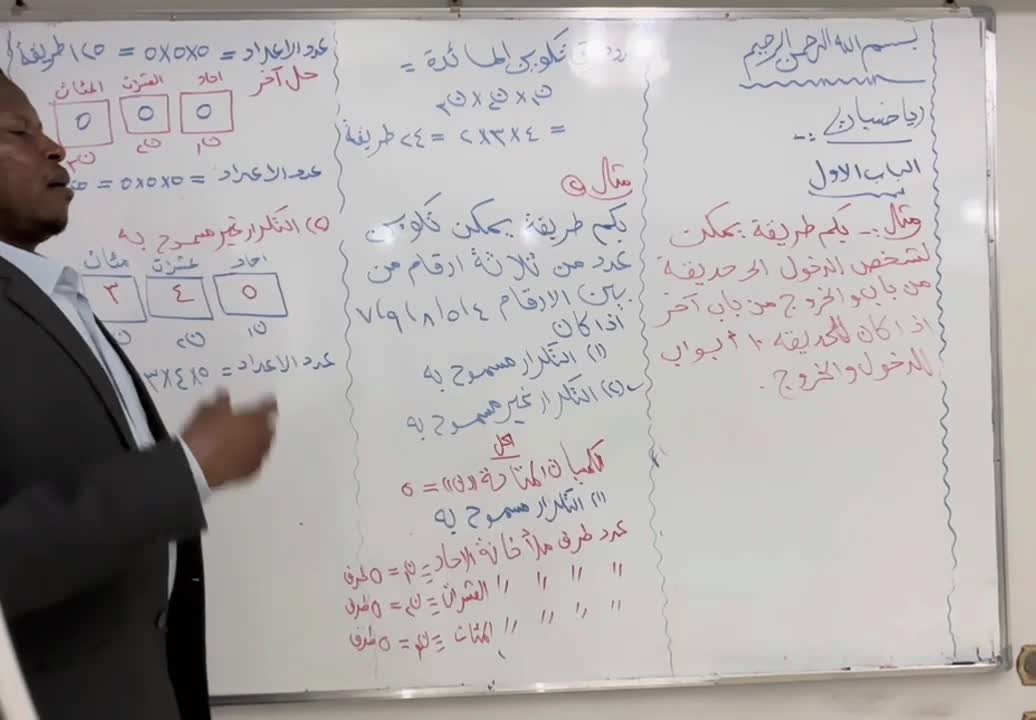 بسم الله الرحمن الرحيم
رياضيات :-
الباب الاول
مثال :- بكم طريقة يمكن
لشخص الدخول الى حديقة
من باب والخروج من باب آخر
اذا كان للحديقه ١٠ أبواب
للدخول والخروج .
تكوين المائدة =
ن١ × ن٢ × ن٣
= ٤×٣×٢ = ٢٤ طريقة
مثال
بكم طريقة يمكن تكوين
عدد من ثلاثة ارقام من
بين الارقام ٤ ا ٥ ا ٨ ا ٩ ا ٧
اذا كان
(١) التكرار مسموح به
(٢) التكرار غير مسموح به
الحل
الكميات المتاحة «ن» = ٥
(١) التكرار مسموح به
عدد طرق ملأ خانة الاحاد = ن١ = ٥ طرق
〃 〃 〃 〃 العشرات = ن٢ = ٥ طرق
〃 〃 〃 〃 المئات = ن٣ = ٥ طرق
عدد الاعداد = ٥×٥×٥ = ١٢٥ طريقة
حل آخر
احاد العشرات المئات
٥ ٥ ٥
ن١ ن٢ ن٣
عدد الاعداد = ٥×٥×٥ =
(٢) التكرار غير مسموح به
احاد عشرات مئات
٥ ٤ ٣
ن١ ن٢
عدد الاعداد = ٥×٤×٣